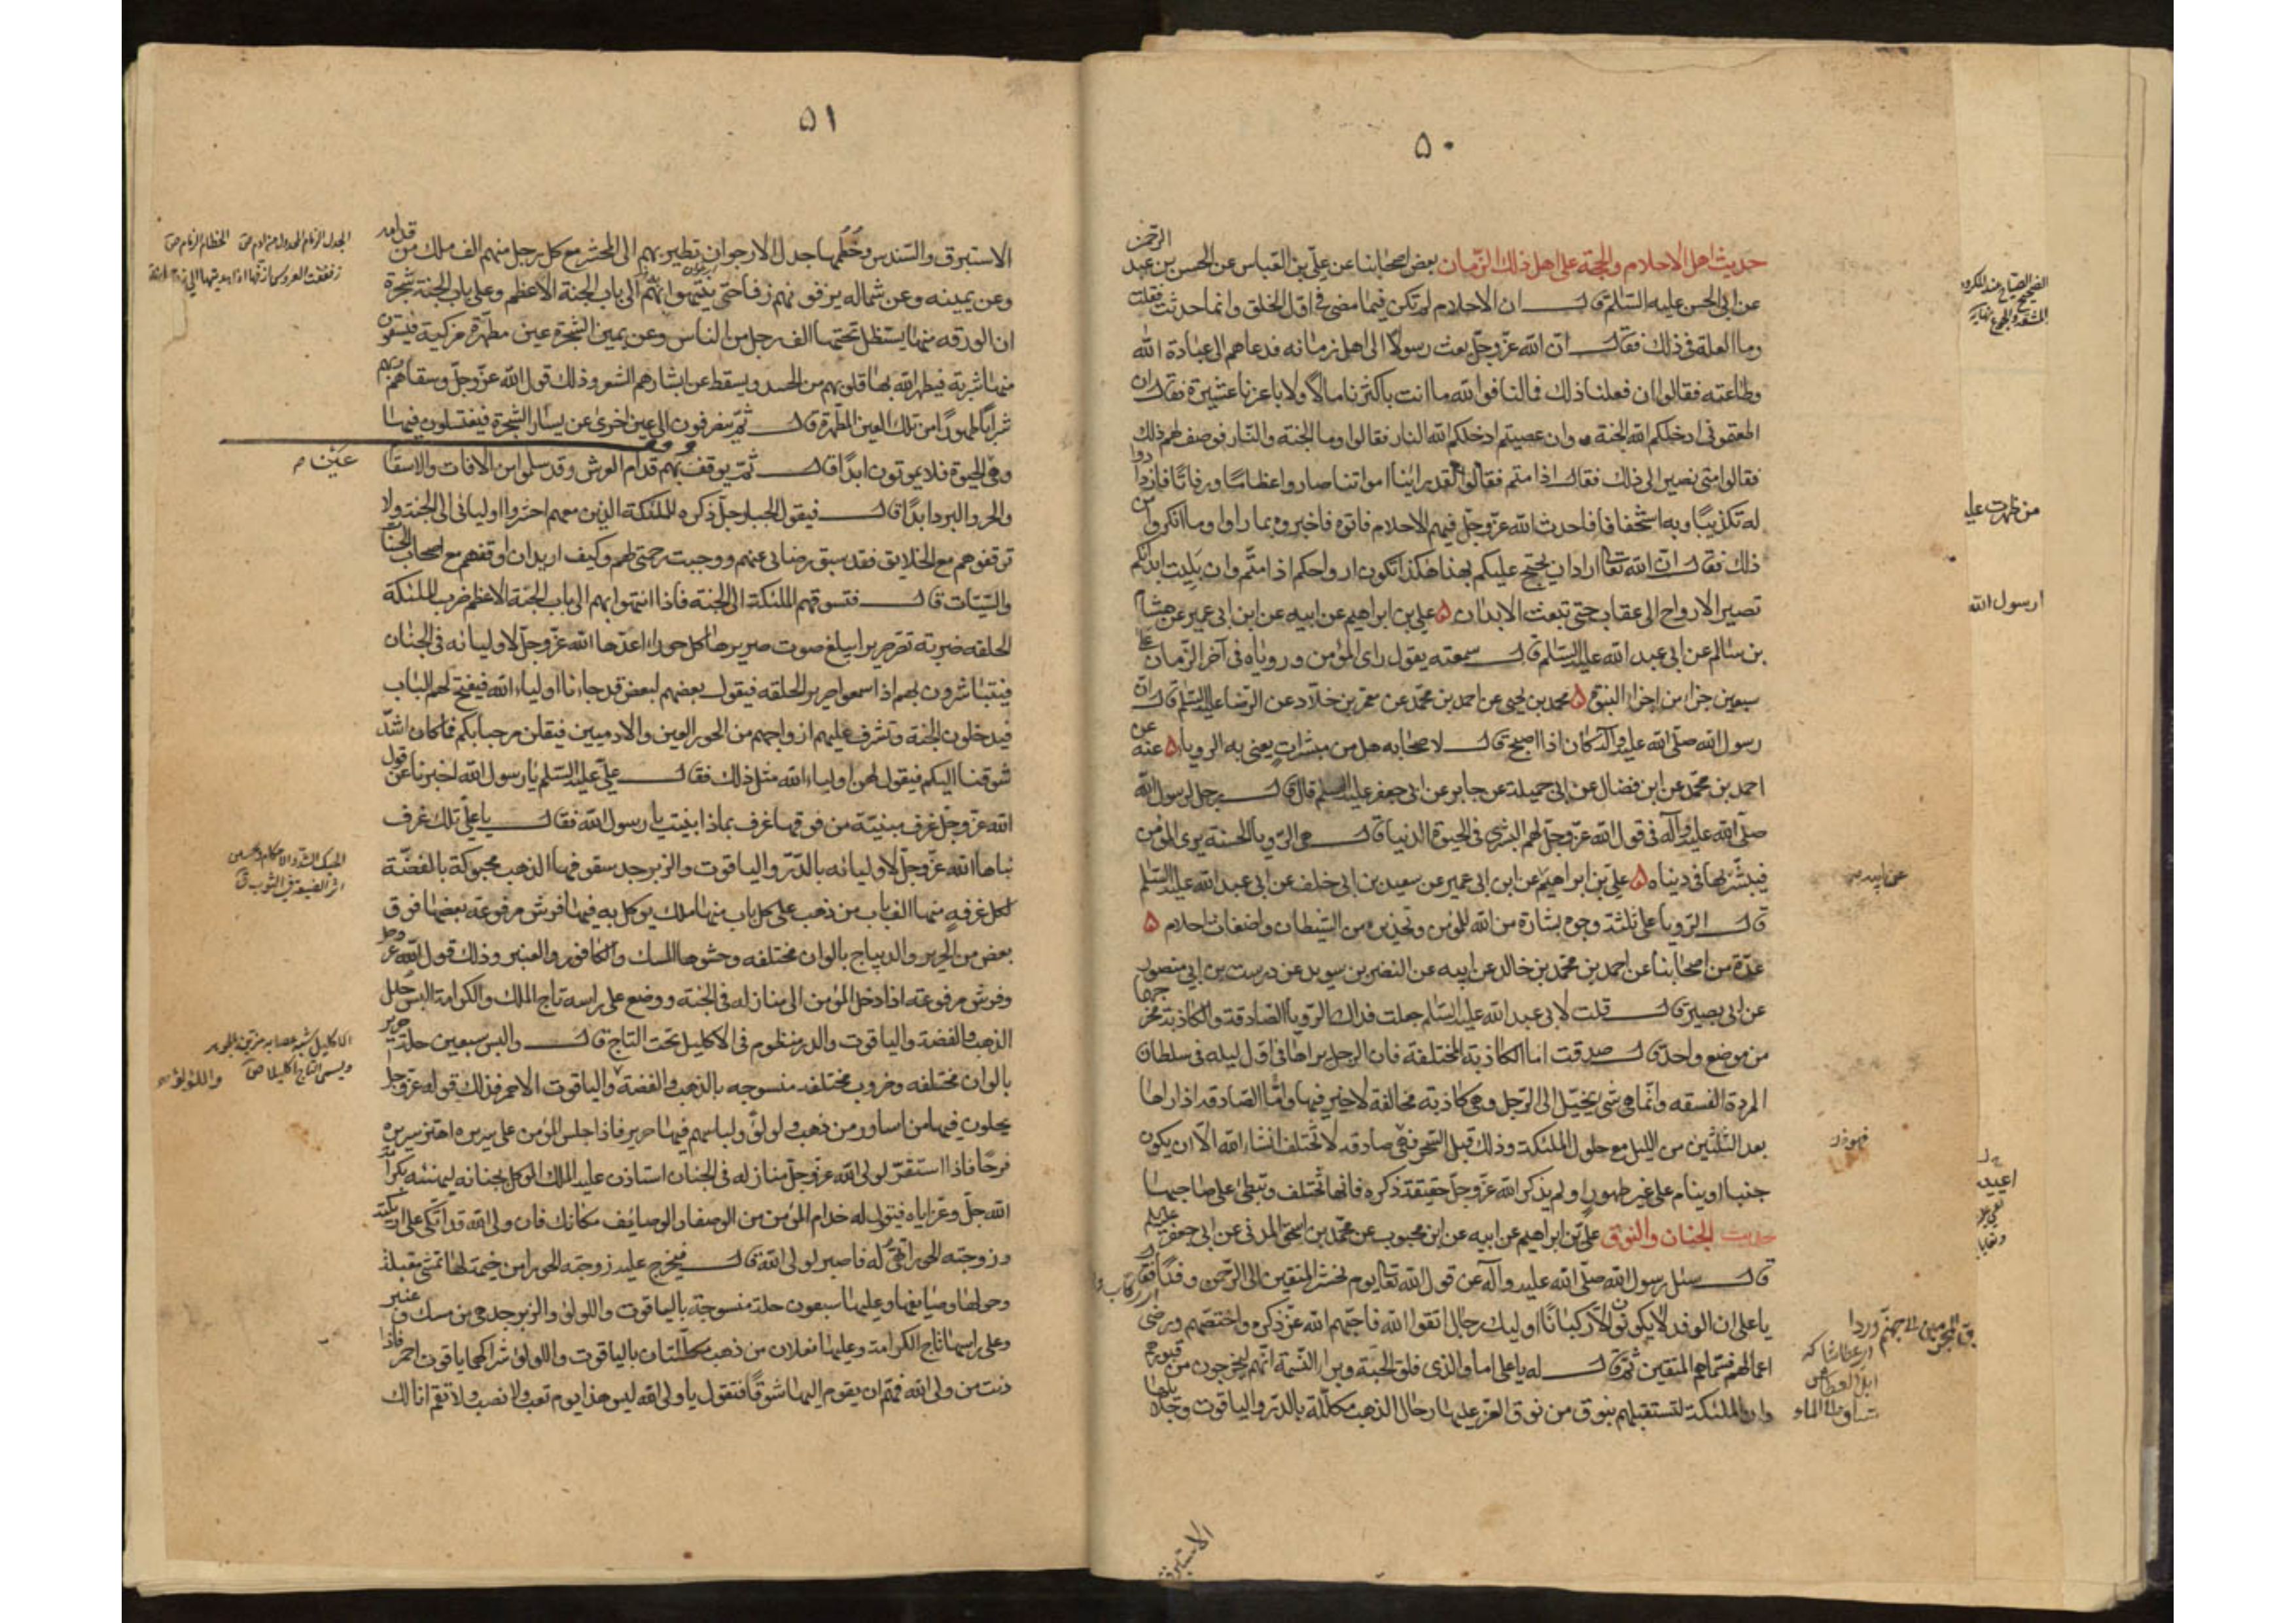 ٥٠
حديث اهل الاحلام والحجة على اهل ذلك الزمان بعض اصحابنا عن علي بن العباس عن الحسن بن عبد الرحمن
عن ابي الحسن عليه السلم قال ان الاحلام لم تكن فيما مضى في اول الخلق وانما حدثت فقلت
وما العلة في ذلك فقال ان الله عز وجل بعث رسولا الى اهل زمانه فدعاهم الى عبادة الله
وطاعته فقالوا ان فعلنا ذلك فمالنا فوالله ما انت باكثرنا مالا ولا باعزنا عشيرة فقال ان
اطعتموني ادخلكم الله الجنة وان عصيتم ادخلكم الله النار فقالوا وما الجنة والنار فوصف لهم ذلك
فقالوا متى نصير الى ذلك فقال اذا متم فقالوا لقد راينا امواتنا صاروا عظاما ورفاتا فازدادوا
له تكذيبا وبه استخفافا فاحدث الله عز وجل فيهم الاحلام فاتوه فاخبروه بما راوا وما انكروا من
ذلك فقال ان الله تعالى اراد ان يحتج عليكم بهذا هكذا تكون ارواحكم اذا متم وان بليت ابدانكم
تصير الارواح الى عقاب حتى تبعث الابدان ۵ علي بن ابراهيم عن ابيه عن ابن ابي عمير عن هشام
بن سالم عن ابي عبد الله عليه السلم قال سمعته يقول راى المؤمن وروياه في آخر الزمان على
سبعين جزا من اجزاء النبوة ۵ محمد بن يحيى عن احمد بن محمد عن معمر بن خلاد عن الرضا عليه السلم قال ان
رسول الله صلى الله عليه وآله كان اذا اصبح قال لاصحابه هل من مبشرات يعني به الرويا ۵ عنه عن
احمد بن محمد عن ابن فضال عن ابي جميلة عن جابر عن ابي جعفر عليه السلم قال قال رجل لرسول الله
صلى الله عليه وآله في قول الله عز وجل لهم البشرى في الحيوة الدنيا قال هي الرويا الحسنة يرى المؤمن
فيبشر بها في دنياه ۵ علي بن ابراهيم عن ابن ابي عمير عن سعيد بن ابي خلف عن ابي عبد الله عليه السلم
قال الرويا على ثلثة وجوه بشارة من الله للمؤمن وتحذير من الشيطان واضغاث احلام ۵
عدة من اصحابنا عن احمد بن محمد بن خالد عن ابيه عن النضر بن سويد عن درست بن ابي منصور
عن ابي بصير قال قلت لابي عبد الله عليه السلم جعلت فداك الرويا الصادقة والكاذبة مخرجهما
من موضع واحد قال صدقت اما الكاذبة المختلفة فان الرجل يراها في اول ليله في سلطان
المردة الفسقه وانما هي شي يخيل الى الرجل وهي كاذبة مخالفة لاخير فيها واما الصادقة اذا راها
بعد الثلثين من الليل مع حلول الملئكة وذلك قبل السحر فهي صادقه لا تختلف انشاء الله الا ان يكون
جنبا او ينام على غير طهور او لم يذكر الله عز وجل حقيقة ذكره فانها تختلف وتبطئ على صاحبها
حديث الجنان والنوق علي بن ابراهيم عن ابيه عن ابن محبوب عن محمد بن اسحق المدني عن ابي جعفر عليه السلم
قال سئل رسول الله صلى الله عليه وآله عن قول الله تعالى يوم نحشر المتقين الى الرحمن وفدا فقال
يا علي ان الوفد لا يكونون الا ركبانا اوليك رجال اتقوا الله فاحبهم الله عز ذكره واختصهم ورضي
اعمالهم فسماهم المتقين ثم قال له يا علي اما والذي فلق الحبة وبرا النسمة انهم ليخرجون من قبورهم
وان الملئكة لتستقبلهم بنوق من نوق العز عليها رحال الذهب مكللة بالدر والياقوت وجلالها
الاستبرق
من ظهرت عليه
ارسول الله
٥١
الاستبرق والسندس وخطمها جدل الارجوان تطير بهم الى المحشر مع كل رجل منهم الف ملك من قدامه
وعن يمينه وعن شماله يزفونهم زفا حتى ينتهوا بهم الى باب الجنة الاعظم وعلى باب الجنة شجرة
ان الورقه منها يستظل تحتها الف رجل من الناس وعن يمين الشجرة عين مطهرة مزكية فيسقون
منها شربة فيطهر الله بها قلوبهم من الحسد ويسقط عن ابشارهم الشعر وذلك قول الله عز وجل وسقاهم ربهم
شرابا طهورا من تلك العين المطهرة قال ثم ينصرفون الى عين اخرى عن يسار الشجرة فيغتسلون فيها
وهي عين الحيوة فلا يموتون ابدا قال ثم يوقف بهم قدام العرش وقد سلموا من الافات والاسقام
والحر والبرد ابدا قال فيقول الجبار جل ذكره للملئكة الذين معهم احشروا اوليائي الى الجنة ولا
توقفوهم مع الخلايق فقد سبق رضائي عنهم ووجبت رحمتي لهم وكيف اريد ان اوقفهم مع اصحاب الحسنات
والسيئات قال فتسوقهم الملئكة الى الجنة فاذا انتهوا بهم الى باب الجنة الاعظم ضرب الملئكة
الحلقه ضربة تصر صريرا يبلغ صوت صريرها كل حوراء اعدها الله عز وجل لاوليائه في الجنان
فيتباشرون بهم اذا سمعوا صرير الحلقه فيقول بعضهم لبعض قد جاءنا اولياء الله فيفتح لهم الباب
فيدخلون الجنة وتشرف عليهم ازواجهم من الحور العين والادميين فيقلن مرحبا بكم فما كان اشد
شوقنا اليكم فيقول لهن اولياء الله مثل ذلك فقال علي عليه السلم يا رسول الله اخبرنا عن قول
الله عز وجل غرف مبنية من فوقها غرف بماذا بنيت يا رسول الله فقال يا علي تلك غرف
بناها الله عز وجل لاوليائه بالدر والياقوت والزبرجد سقوفها الذهب محبوكة بالفضة
لكل غرفه منها الف باب من ذهب على كل باب منها ملك موكل به فيها فرش مرفوعة بعضها فوق
بعض من الحرير والديباج بالوان مختلفه وحشوها المسك والكافور والعنبر وذلك قول الله عز وجل
وفرش مرفوعة اذا دخل المؤمن الى منازله في الجنة ووضع على راسه تاج الملك والكرامة البس حلل
الذهب والفضة والياقوت والدر منظوم في الاكليل تحت التاج قال والبس سبعين حلة حرير
بالوان مختلفه وضروب مختلفه منسوجه بالذهب والفضة والياقوت الاحمر فذلك قوله عز وجل
يحلون فيها من اساور من ذهب ولولؤ ولباسهم فيها حرير فاذا جلس المؤمن على سريره اهتز سريره
فرحا فاذا استقر لولي الله عز وجل منازله في الجنان استاذن عليه الملك الموكل بجنانه ليهنئه بكرامة
الله جل وعز اياه فيقول له خدام المؤمن من الوصفا والوصائف مكانك فان ولي الله قد اتكى على اريكته
وزوجته الحورا تهيأ له فاصبر لولي الله قال فيخرج عليه زوجته الحورا من خيمة لها تمشي مقبلة
وحولها وصايفها وعليها سبعون حلة منسوجة بالياقوت واللولؤ والزبرجد هي من مسك وعنبر
وعلى راسها تاج الكرامة وعليها نعلان من ذهب مكللتان بالياقوت واللولؤ شراكهما ياقوت احمر فاذا
دنت من ولي الله فهم ان يقوم اليها شوقا فتقول يا ولي الله ليس هذا يوم تعب ولا نصب ولا تقم انا لك
عين